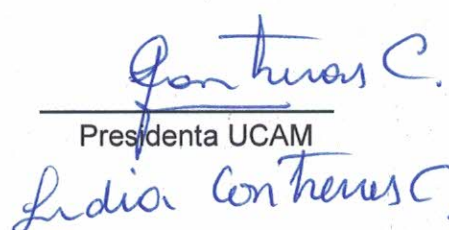 Contreras C.
Presidenta UCAM
Lidia Contreras C.